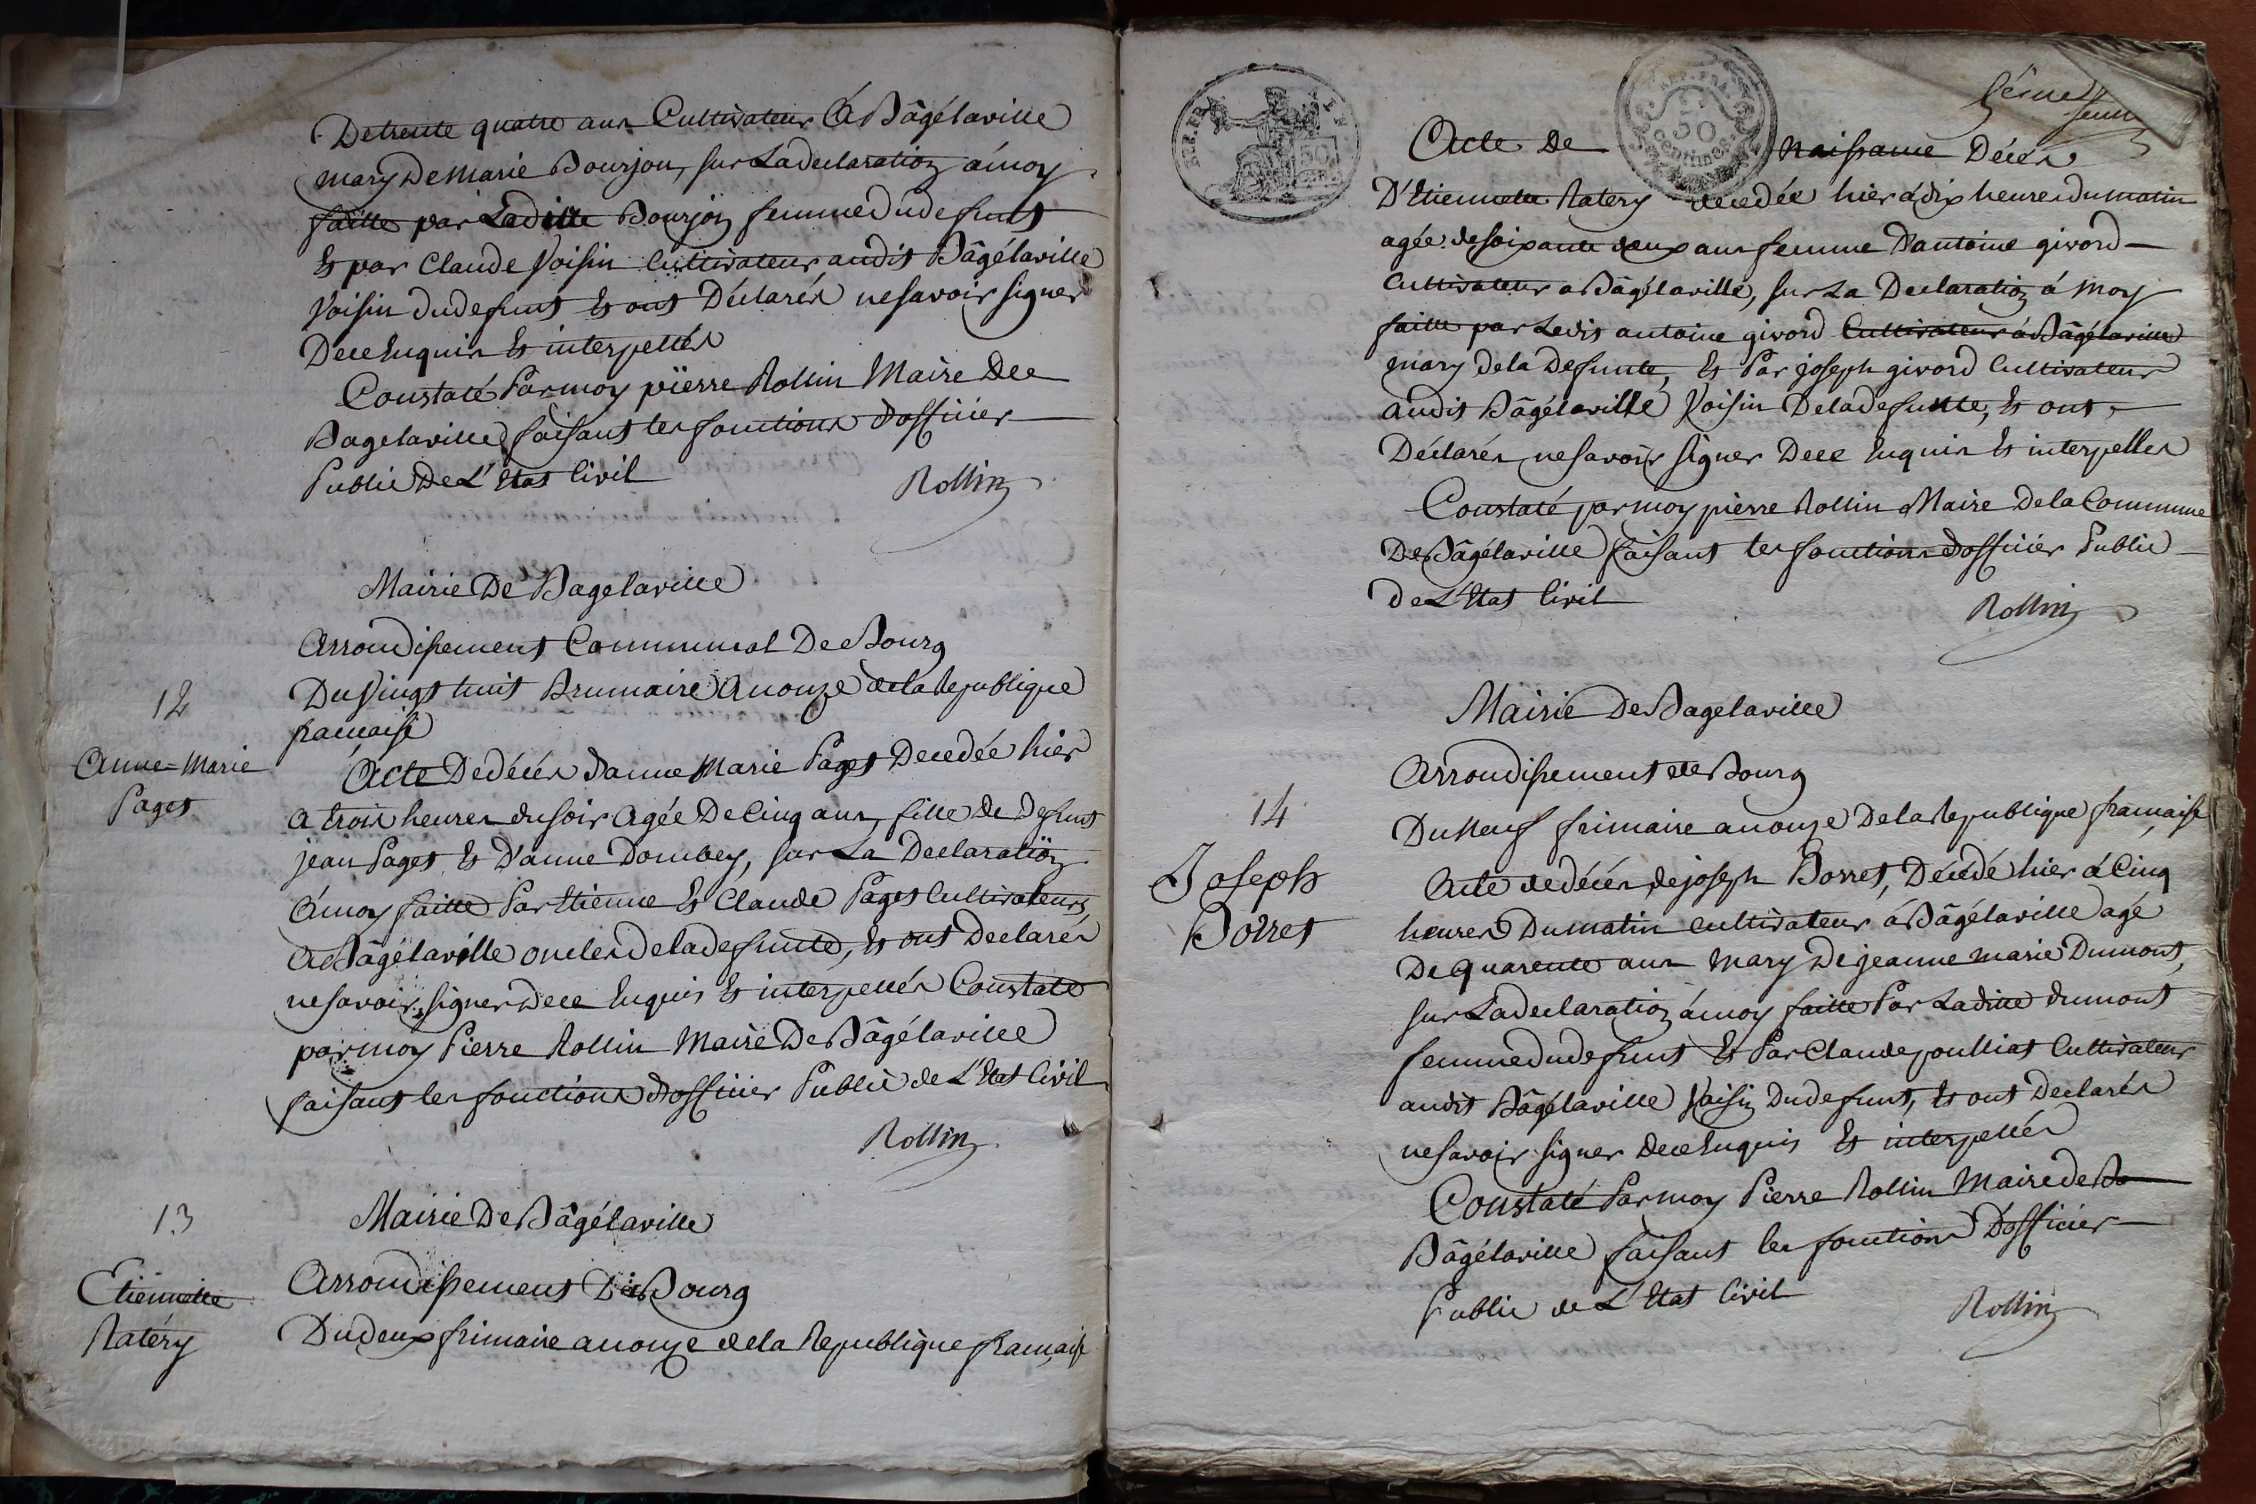 De trente quatre ans Cultivateur à Bâgélaville
mary De marie Bourjon, sur La declaration à moy
faitte par Laditte Bourjon femme du defunt
Et par Claude Voisin Cultivateur audit Bâgélaville
Voisin du defunt Et ont Déclarés ne savoir signer
De ce Enquis Et interpellés
Constaté Par moy pierre Rollin Maire De
Bagelaville faisant les fonctions d'officier
Public De L'Etat Civil
Rollin
Mairie De Bagelaville
Arrondissement Communal De Bourg
12
Du Vingt huit Brumaire an onze de la Republique
francaise
Anne=Marie
Pages
Acte De décés d'anne Marie Pages Decedée hier
à trois heures du soir agée De Cinq ans, fille de Defunt
jean Pages Et D'anne Dombey, sur La Declaration
à moy faitte Par Etienne Et Claude Pages Cultivateurs
à Bâgélaville oncles de la defunte, Et ont Declarés
ne savoir signer de ce Enquis Et interpellés Constaté
par moy Pierre Rollin Maire De Bâgélaville
faisant les fonctions d'officier Public de L'Etat Civil
Rollin
13
Mairie De Bâgélaville
Etiennette
Ratéry
Arrondissement De Bourg
Du deux frimaire an onze de la Republique française
REP. FRA.
50
CENT.
REP. FRA.
50
centimes
Acte De naissance Décés
D'Etiennette Ratery decedée hier à dix heures du matin
agée de soixante deux ans femme D'antoine givord
Cultivateur à Bâgélaville, sur La Declaration à moy
faitte par Ledit antoine givord Cultivateur à Bâgélaville
mary de la Defunte, Et Par joseph givord Cultivateur
audit Bâgélaville Voisin De la defunte, Et ont
Déclarés ne savoir signer De ce Enquis Et interpellés
Constaté par moy pierre Rollin Maire De la Commune
De Bâgélaville faisant les fonctions d'officier Public
de L'Etat Civil
Rollin
Mairie De Bagelaville
Arrondissement de Bourg
14
Du Neuf frimaire an onze De la Republique francaise
Joseph
Borret
Acte de décés, de joseph Borret, Décédé hier à Cinq
heures Du matin cultivateur à Bâgélaville agé
De quarente ans mary De jeanne marie Dumont,
sur La declaration à moy faitte Par Laditte dumont
femme du defunt Et Par Claude poulliat Cultivateur
audit Bâgélaville Voisin Du defunt, Et ont Declarés
ne savoir signer de ce Enquis Et interpellés
Constaté Par moy Pierre Rollin Maire de Ba
Bâgélaville faisant les fonctions D'officier
Public de L'Etat Civil
Rollin